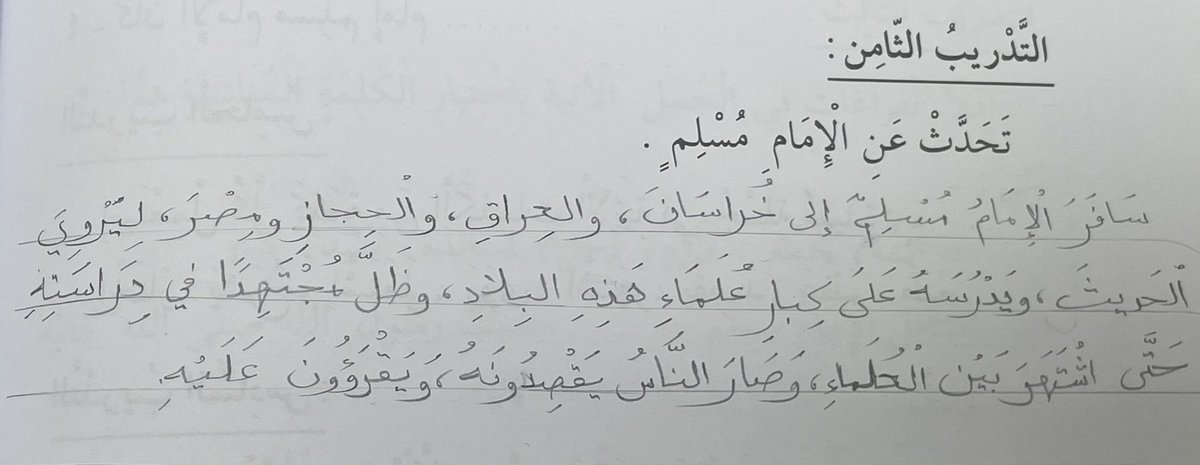 التَّدْرِيبُ الثَّامِن :
تَحَدَّثْ عَنِ الْإِمَامِ مُسْلِمٍ .
سَافَرَ الْإِمَامُ مُسْلِمٌ إلى خُراسَانَ، والعِراقِ، وَالْحِجازِ ومِصْرَ، لِيَرْوِيَ
الْحَدِيثَ، ويَدْرُسَهُ عَلَى كِبارِ عُلَمَاءِ هَذِهِ البِلادِ، وظَلَّ مُجْتَهِدًا في دِرَاسَتِهِ
حَتَّى اشْتَهَرَ بَيْنَ الْعُلَماءِ، وَصَارَ النَّاسُ يَقْصِدُونَهُ، وَيَقْرَؤُونَ عَلَيْهِ.